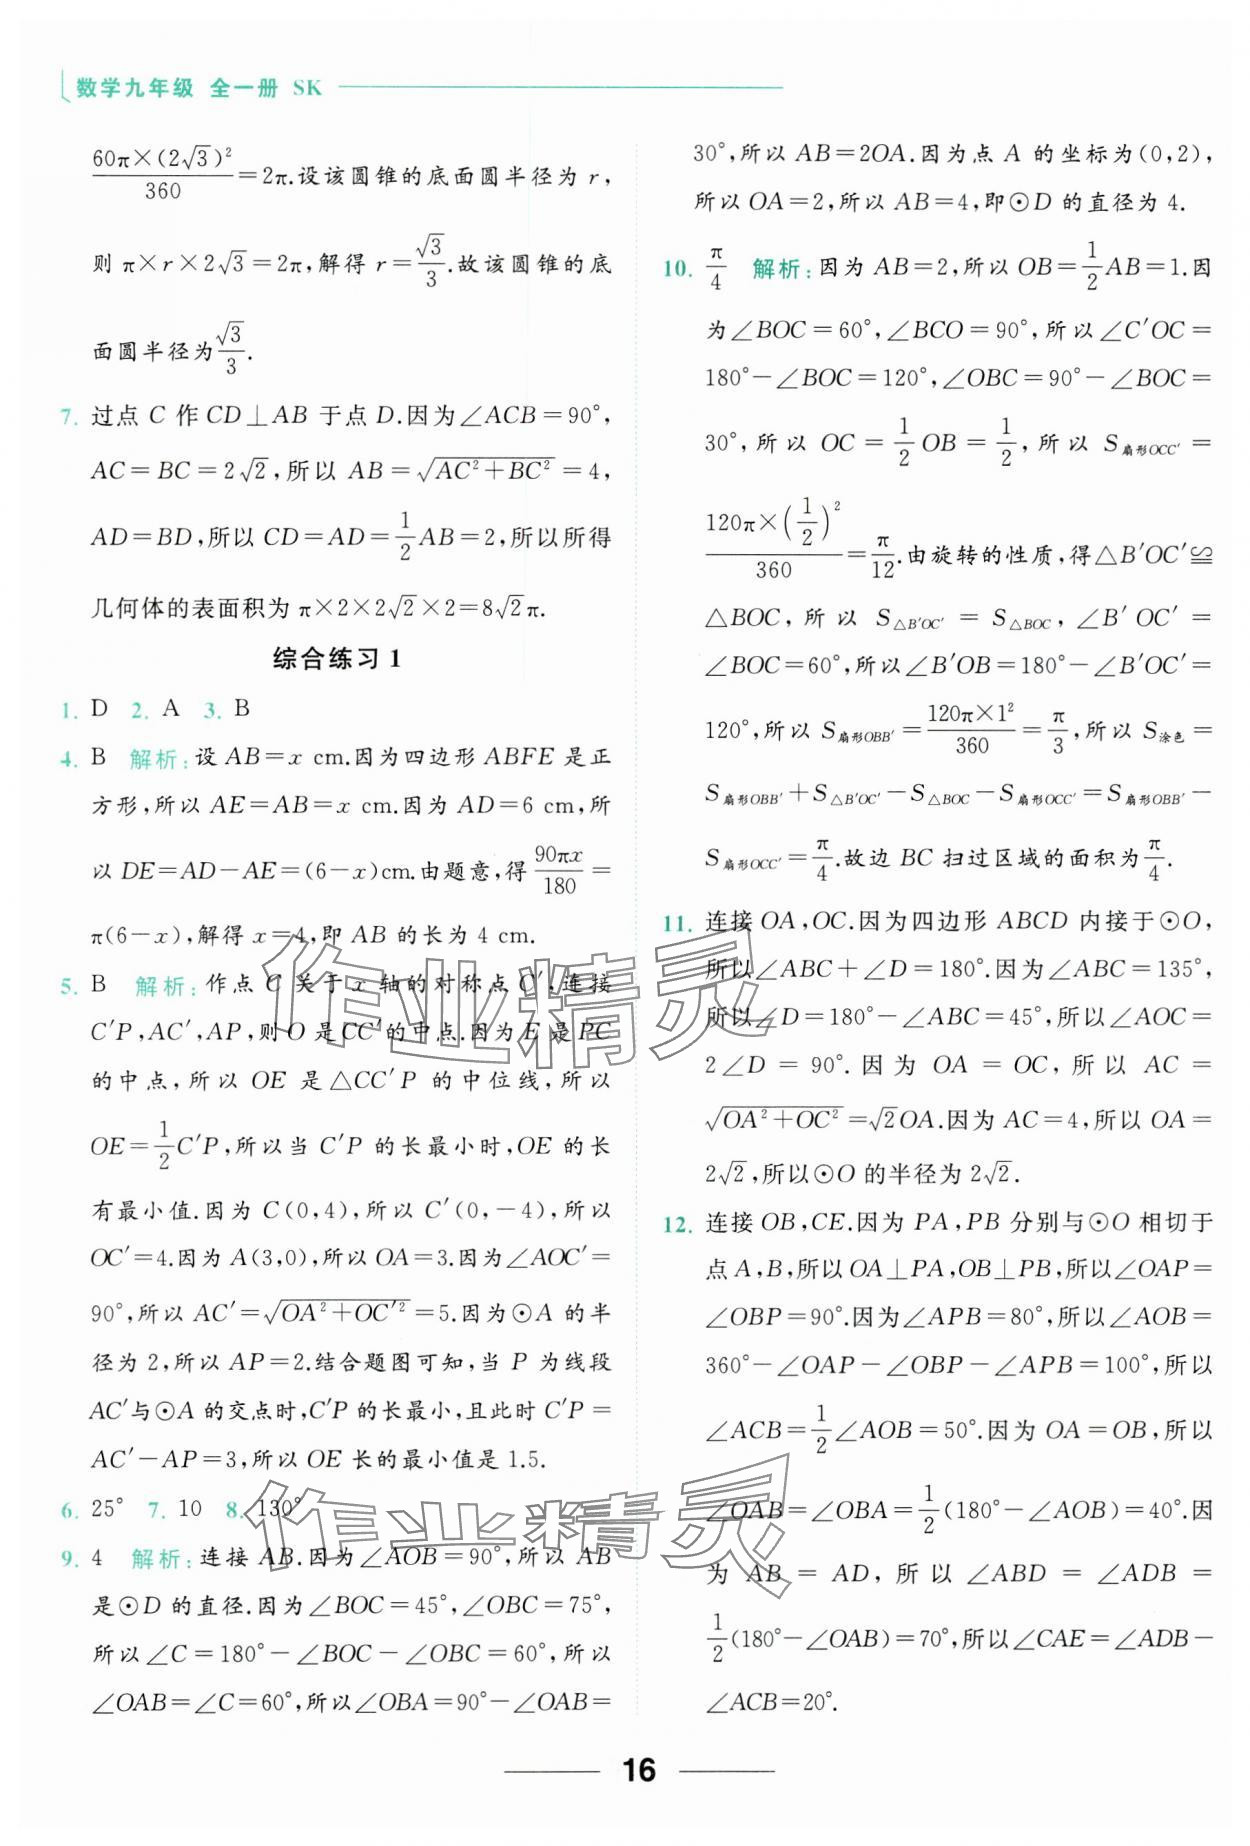 数学九年级 全一册 SK
60π×(2√3)²/360=2π.设该圆锥的底面圆半径为 r,
则 π×r×2√3=2π,解得 r=√3/3.故该圆锥的底
面圆半径为√3/3.
7. 过点 C 作 CD⊥AB 于点 D.因为∠ACB=90°,
AC=BC=2√2,所以 AB=√(AC²+BC²)=4,
AD=BD,所以 CD=AD=1/2AB=2,所以所得
几何体的表面积为 π×2×2√2×2=8√2π.
综合练习 1
1. D 2. A 3. B
4. B 解析:设 AB=x cm.因为四边形 ABFE 是正
方形,所以 AE=AB=x cm.因为 AD=6 cm,所
以 DE=AD-AE=(6-x)cm.由题意,得90πx/180=
π(6-x),解得 x=4,即 AB 的长为 4 cm.
5. B 解析:作点 C 关于 x 轴的对称点 C′,连接
C′P,AC′,AP,则 O 是 CC′的中点.因为 E 是 PC
的中点,所以 OE 是△CC′P 的中位线,所以
OE=1/2C′P,所以当 C′P 的长最小时,OE 的长
有最小值.因为 C(0,4),所以 C′(0,-4),所以
OC′=4.因为 A(3,0),所以 OA=3.因为∠AOC′=
90°,所以 AC′=√(OA²+OC′²)=5.因为⊙A 的半
径为 2,所以 AP=2.结合题图可知,当 P 为线段
AC′与⊙A 的交点时,C′P 的长最小,且此时 C′P=
AC′-AP=3,所以 OE 长的最小值是 1.5.
6. 25° 7. 10 8. 130°
9. 4 解析:连接 AB.因为∠AOB=90°,所以 AB
是⊙D 的直径.因为∠BOC=45°,∠OBC=75°,
所以∠C=180°-∠BOC-∠OBC=60°,所以
∠OAB=∠C=60°,所以∠OBA=90°-∠OAB=
30°,所以 AB=2OA.因为点 A 的坐标为(0,2),
所以 OA=2,所以 AB=4,即⊙D 的直径为 4.
10. π/4 解析:因为 AB=2,所以 OB=1/2AB=1.因
为∠BOC=60°,∠BCO=90°,所以∠C′OC=
180°-∠BOC=120°,∠OBC=90°-∠BOC=
30°,所以 OC=1/2OB=1/2,所以 S扇形OCC′=
120π×(1/2)²/360=π/12.由旋转的性质,得△B′OC′≌
△BOC,所以 S△B′OC′=S△BOC,∠B′OC′=
∠BOC=60°,所以∠B′OB=180°-∠B′OC′=
120°,所以 S扇形OBB′=120π×1²/360=π/3,所以 S涂色=
S扇形OBB′+S△B′OC′-S△BOC-S扇形OCC′=S扇形OBB′-
S扇形OCC′=π/4.故边 BC 扫过区域的面积为π/4.
11. 连接 OA,OC.因为四边形 ABCD 内接于⊙O,
所以∠ABC+∠D=180°.因为∠ABC=135°,
所以∠D=180°-∠ABC=45°,所以∠AOC=
2∠D=90°.因为 OA=OC,所以 AC=
√(OA²+OC²)=√2OA.因为 AC=4,所以 OA=
2√2,所以⊙O 的半径为 2√2.
12. 连接 OB,CE.因为 PA,PB 分别与⊙O 相切于
点 A,B,所以 OA⊥PA,OB⊥PB,所以∠OAP=
∠OBP=90°.因为∠APB=80°,所以∠AOB=
360°-∠OAP-∠OBP-∠APB=100°,所以
∠ACB=1/2∠AOB=50°.因为 OA=OB,所以
∠OAB=∠OBA=1/2(180°-∠AOB)=40°.因
为 AB=AD,所以∠ABD=∠ADB=
1/2(180°-∠OAB)=70°,所以∠CAE=∠ADB-
∠ACB=20°.
16
作业精灵
作业精灵